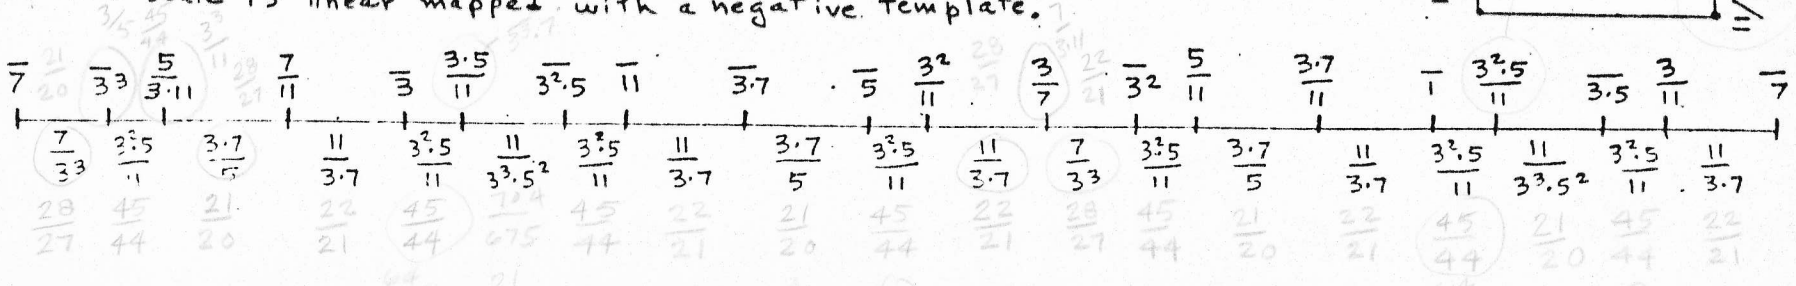 scale is linear mapped with a negative template.
3/5 45/44 3³/11 28/27 7/3·11
21/20 28/27 22/21
‾/7 ‾/3³ 5/3·11 7/11 ‾/3 3·5/11 ‾/3²·5 ‾/11 ‾/3·7 ‾/5 3²/11 3/7 ‾/3² 5/11 3·7/11 ‾/1 3²·5/11 ‾/3·5 3/11 ‾/7
7/3³ 3²·5/11 3·7/5 11/3·7 3²·5/11 11/3³·5² 3²·5/11 11/3·7 3·7/5 3²·5/11 11/3·7 7/3³ 3²·5/11 3·7/5 11/3·7 3²·5/11 11/3³·5² 3²·5/11 11/3·7
28/27 45/44 21/20 22/21 45/44 704/675 45/44 22/21 21/20 45/44 22/21 28/27 45/44 21/20 22/21 45/44 21/20 45/44 22/21